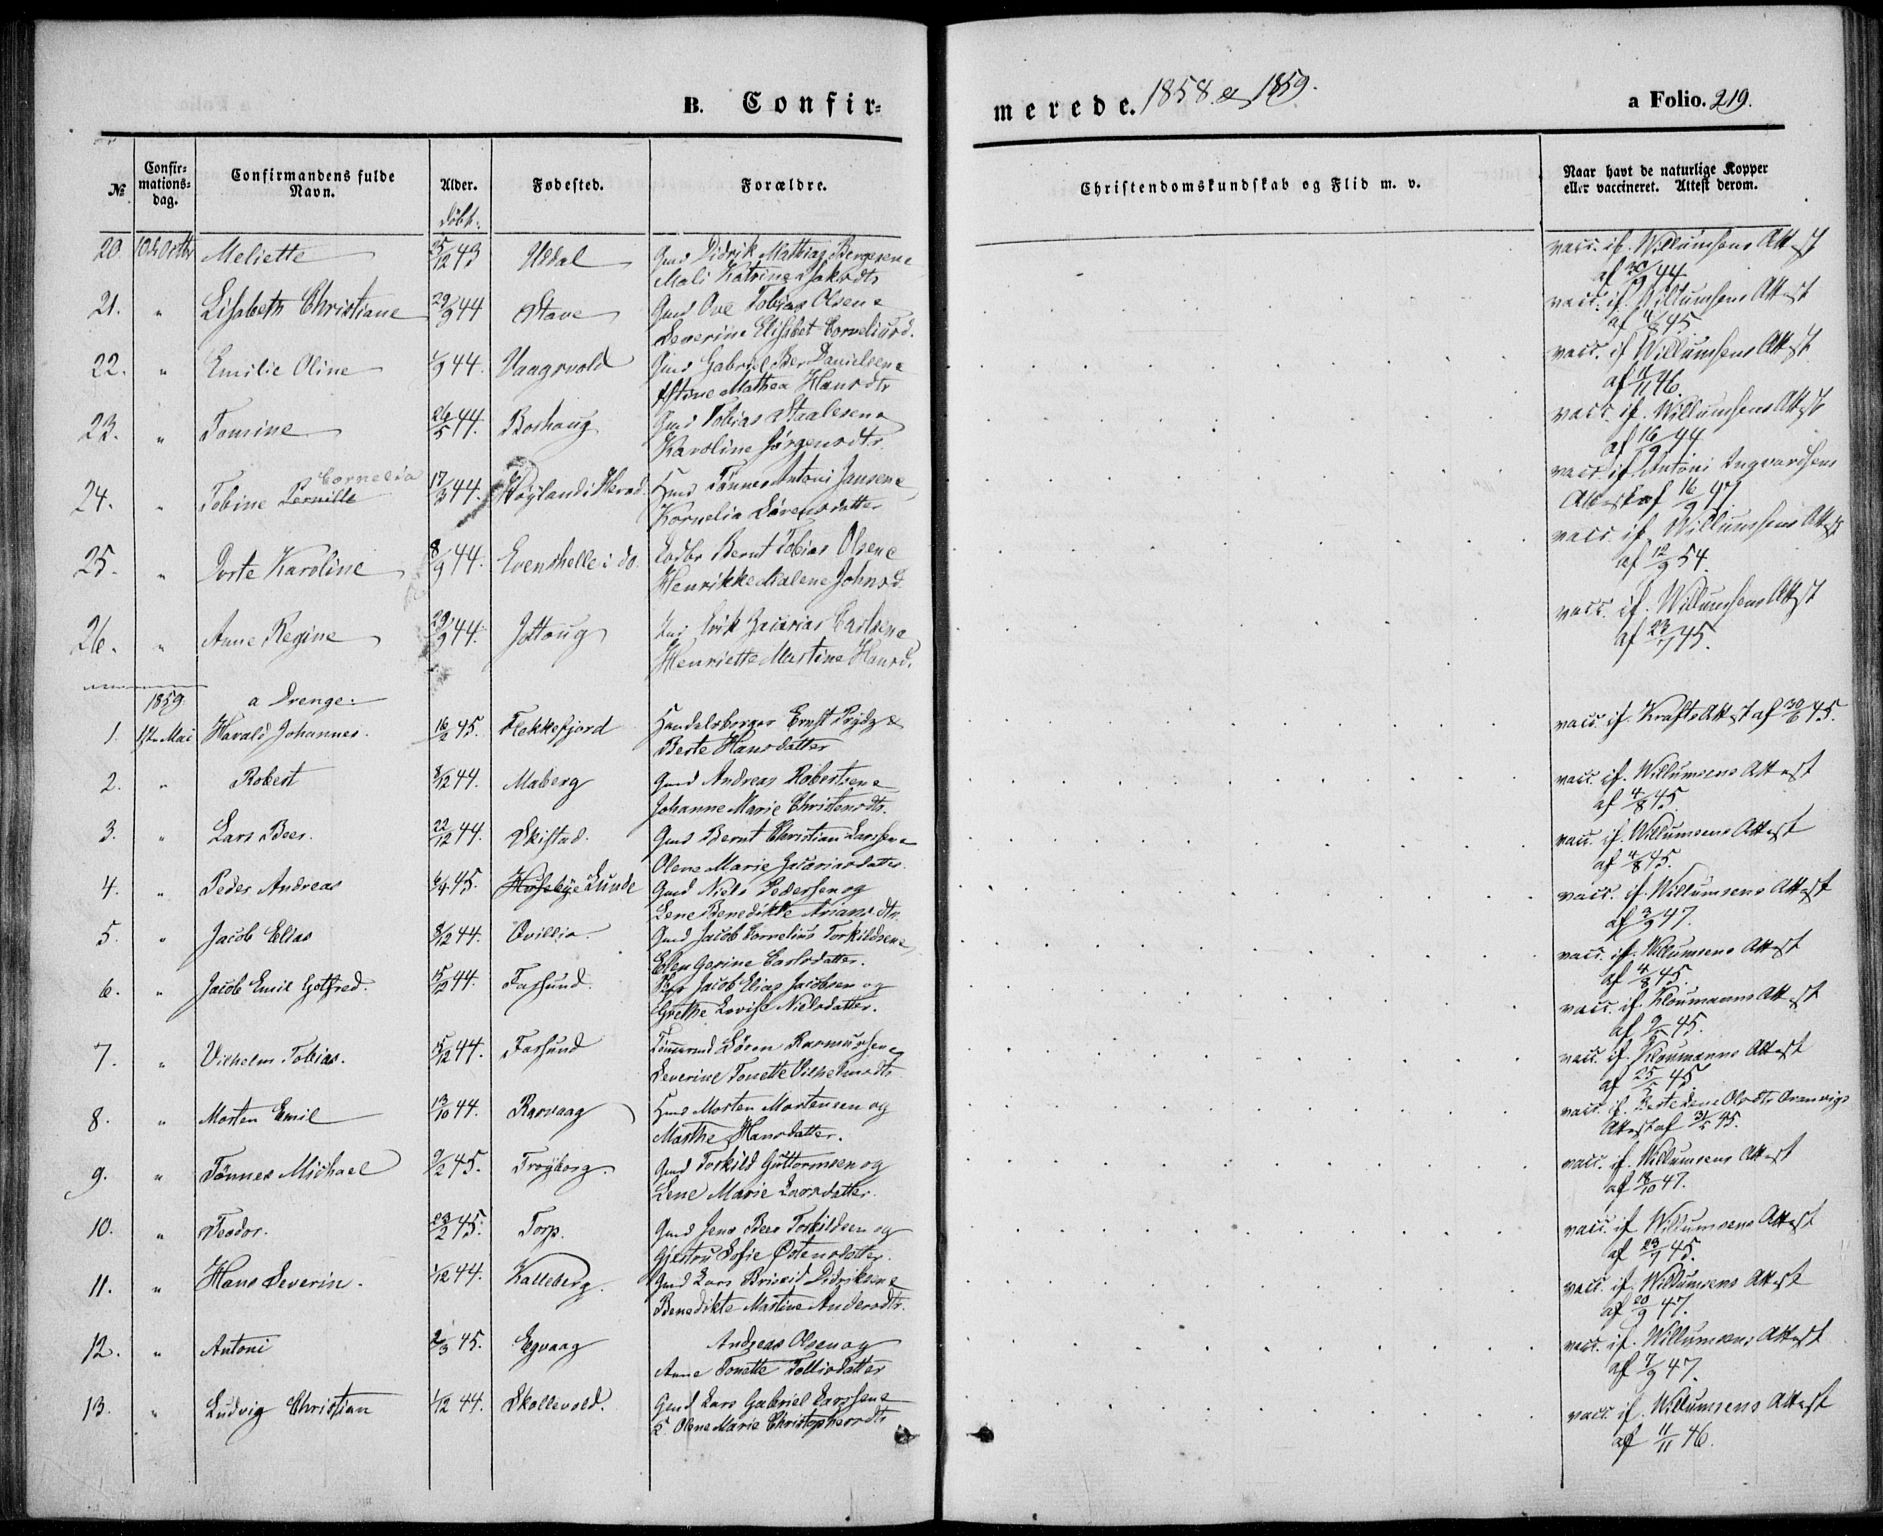 B. Confir=
merede. 1858 & 1859.
a Folio. 219.
№
Confir=
mations=
dag.
Confirmandens fulde
Navn.
Alder.
døbt.
Fødested.
Forældre.
Christendomskundskab og Flid m. v.
Naar havt de naturlige Kopper
eller vaccineret. Attest derom.
20. Octbr Meliette 25/12 43 Gmd Didrik Mathias
Mali Katrine
vacc. if. Willumsens Attest
af 30/9 44
21. " Lisabeth Christiane 29/9 44 Stave Gmd Ove Tobias Olsen &
Severine Elisabet Corneliusd.
vacc. if. Willumsens Attest
af 4/8 45.
22. " Emilie Oline 1/9 44. Vaagsvold Gmd Gabriel Ber Danielsen &
Stine Mathea Hansdtr
vacc. if. Willumsens Attest
af 11/11 46.
23. " Tomine 26/5 44. Boshaug Gmd Tobias Staalesen &
Karoline Jørgensdtr
vacc. if. Willumsens Attest
af 16/9 44
24. " Tobine Pernille Cornelia 17/3 44. Høyland i Herad Hmd Tønnes Antoni Jansen &
Kornelia Sørensdatter
vacc. if. Antoni Ingvardsens
Attest af 16/9 47.
25. " Dorte Karoline 8/9 44. Evenshelle i do. Bernt Tobias Olsen &
Henrikke Malene Johnsd.
vacc. if. Willumsens Attest
af 12/9 54.
26. " Anne Regine 29/9 44. Jottoug Erik Zacarias Carlsen &
Henriette Martine Hansd.
vacc. if. Willumsens Attest
af 23/7 45.
1859. a Drenge.
1. 1ste Mai Harald Johannes. 16/2 45. Flekkefjord Handelsborger Ernst Prydz &
Berte Hansdatter
vacc. if. Krafts Attest af 30/6 45.
2. " Robert 8/12 44. Maberg Gmd Andreas Robertsen &
Johanne Marie Christensdtr.
vacc. if. Willumsens Attest
af 4/8 45.
3. " Lars Beer. 22/12 44. Skistad. Gmd Bernt Christian Larssen &
Olene Marie Zacariasdatter
vacc. if. Willumsens Attest
af 4/8 45.
4. " Peder Andreas 6/4 45. Huseby Lunde Gmd Niels Pedersen og
Lene Benedikte Ariansdtr.
vacc. if. Willumsens Attest
af 3/9 47.
5. " Jacob Elias 8/12 44. Qvillio. Gmd Jacob Cornelius Torkildsen &
Elen Gerine Carlsdatter.
vacc. if. Willumsens Attest
af 4/8 45.
6. " Jacob Emil Gotfred. 15/12 44. Farsund. Jacob Elias Jacobsen og
Grethe Lovise Nielsdatter.
vacc. if. Kloumanns Attest
7. " Vilhelm Tobias. 15/12 44. Farsund Tømmermd Søren Rasmussen &
Severine Tonette Vilhelmsdtr
vacc. if. Kloumanns Attest
8. " Morten Emil 13/10 44. Rarvaag Hmd Morten Mortensen og
Marthe Hansdatter.
vacc. if. Berte Lene Olsdtr
Attest af 31/5 45.
9. " Tønnes Michael 9/2 45. Trøyborg. Gmd Torkild Guttormsen og
Lene Marie Larsdatter.
vacc. if. Willumsens Attest
af 18/10 47.
10. " Teodor. 23/2 45. Torp. Gmd Jens Beer Torkildsen og
Gjertru Sofie Østensdatter.
vacc. if. Willumsens Attest
af 23/7 45.
11. " Hans Severin. 1/12 44. Kalleberg. Gmd Lars Didriksen &
Benedikte Martine Andersdtr.
vacc. if. Willumsens Attest
af 20/9 47.
12. " Antoni 2/3 45. Egvaag Andreas Olsen og
Anne Tonette Tollisdatter
vacc. if. Willumsens Attest
af 7/9 47.
13. " Ludvig Christian 1/12 44. Skollevold. Gmd Lars Gabriel Larssen &
Olene Marie Christophersdtr
vacc. if. Willumsens Attest
af 11/11 46.